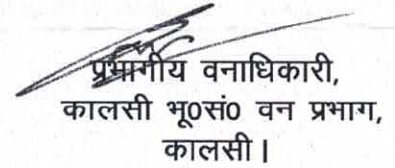 प्रभागीय वनाधिकारी,
कालसी भू0सं0 वन प्रभाग,
कालसी।